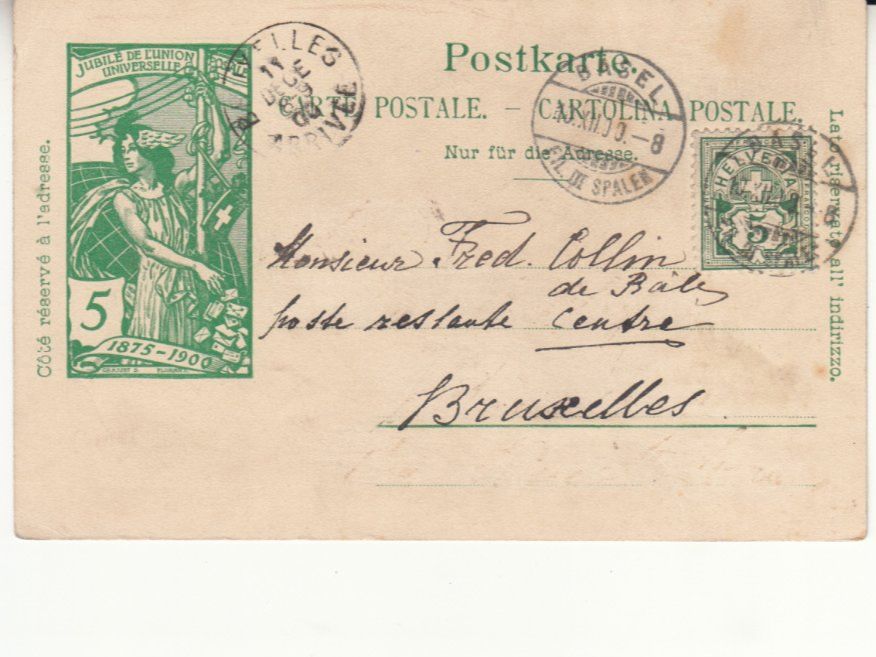 JUBILÉ DE L'UNION
UNIVERSELLE
5
1875-1900
Côté réservé à l'adresse.
BRUXELLES
11
DEC
ARRIVÉE
Postkarte.
CARTE POSTALE. – CARTOLINA POSTALE.
Nur für die Adresse.
BASEL
XII.00.–8
FIL. III SPALEN
BASEL
HELVETIA
5
FRANCO
Monsieur Fred. Collin
de Bâle
poste restante Centre
Bruxelles.
Lato riservato all' indirizzo.